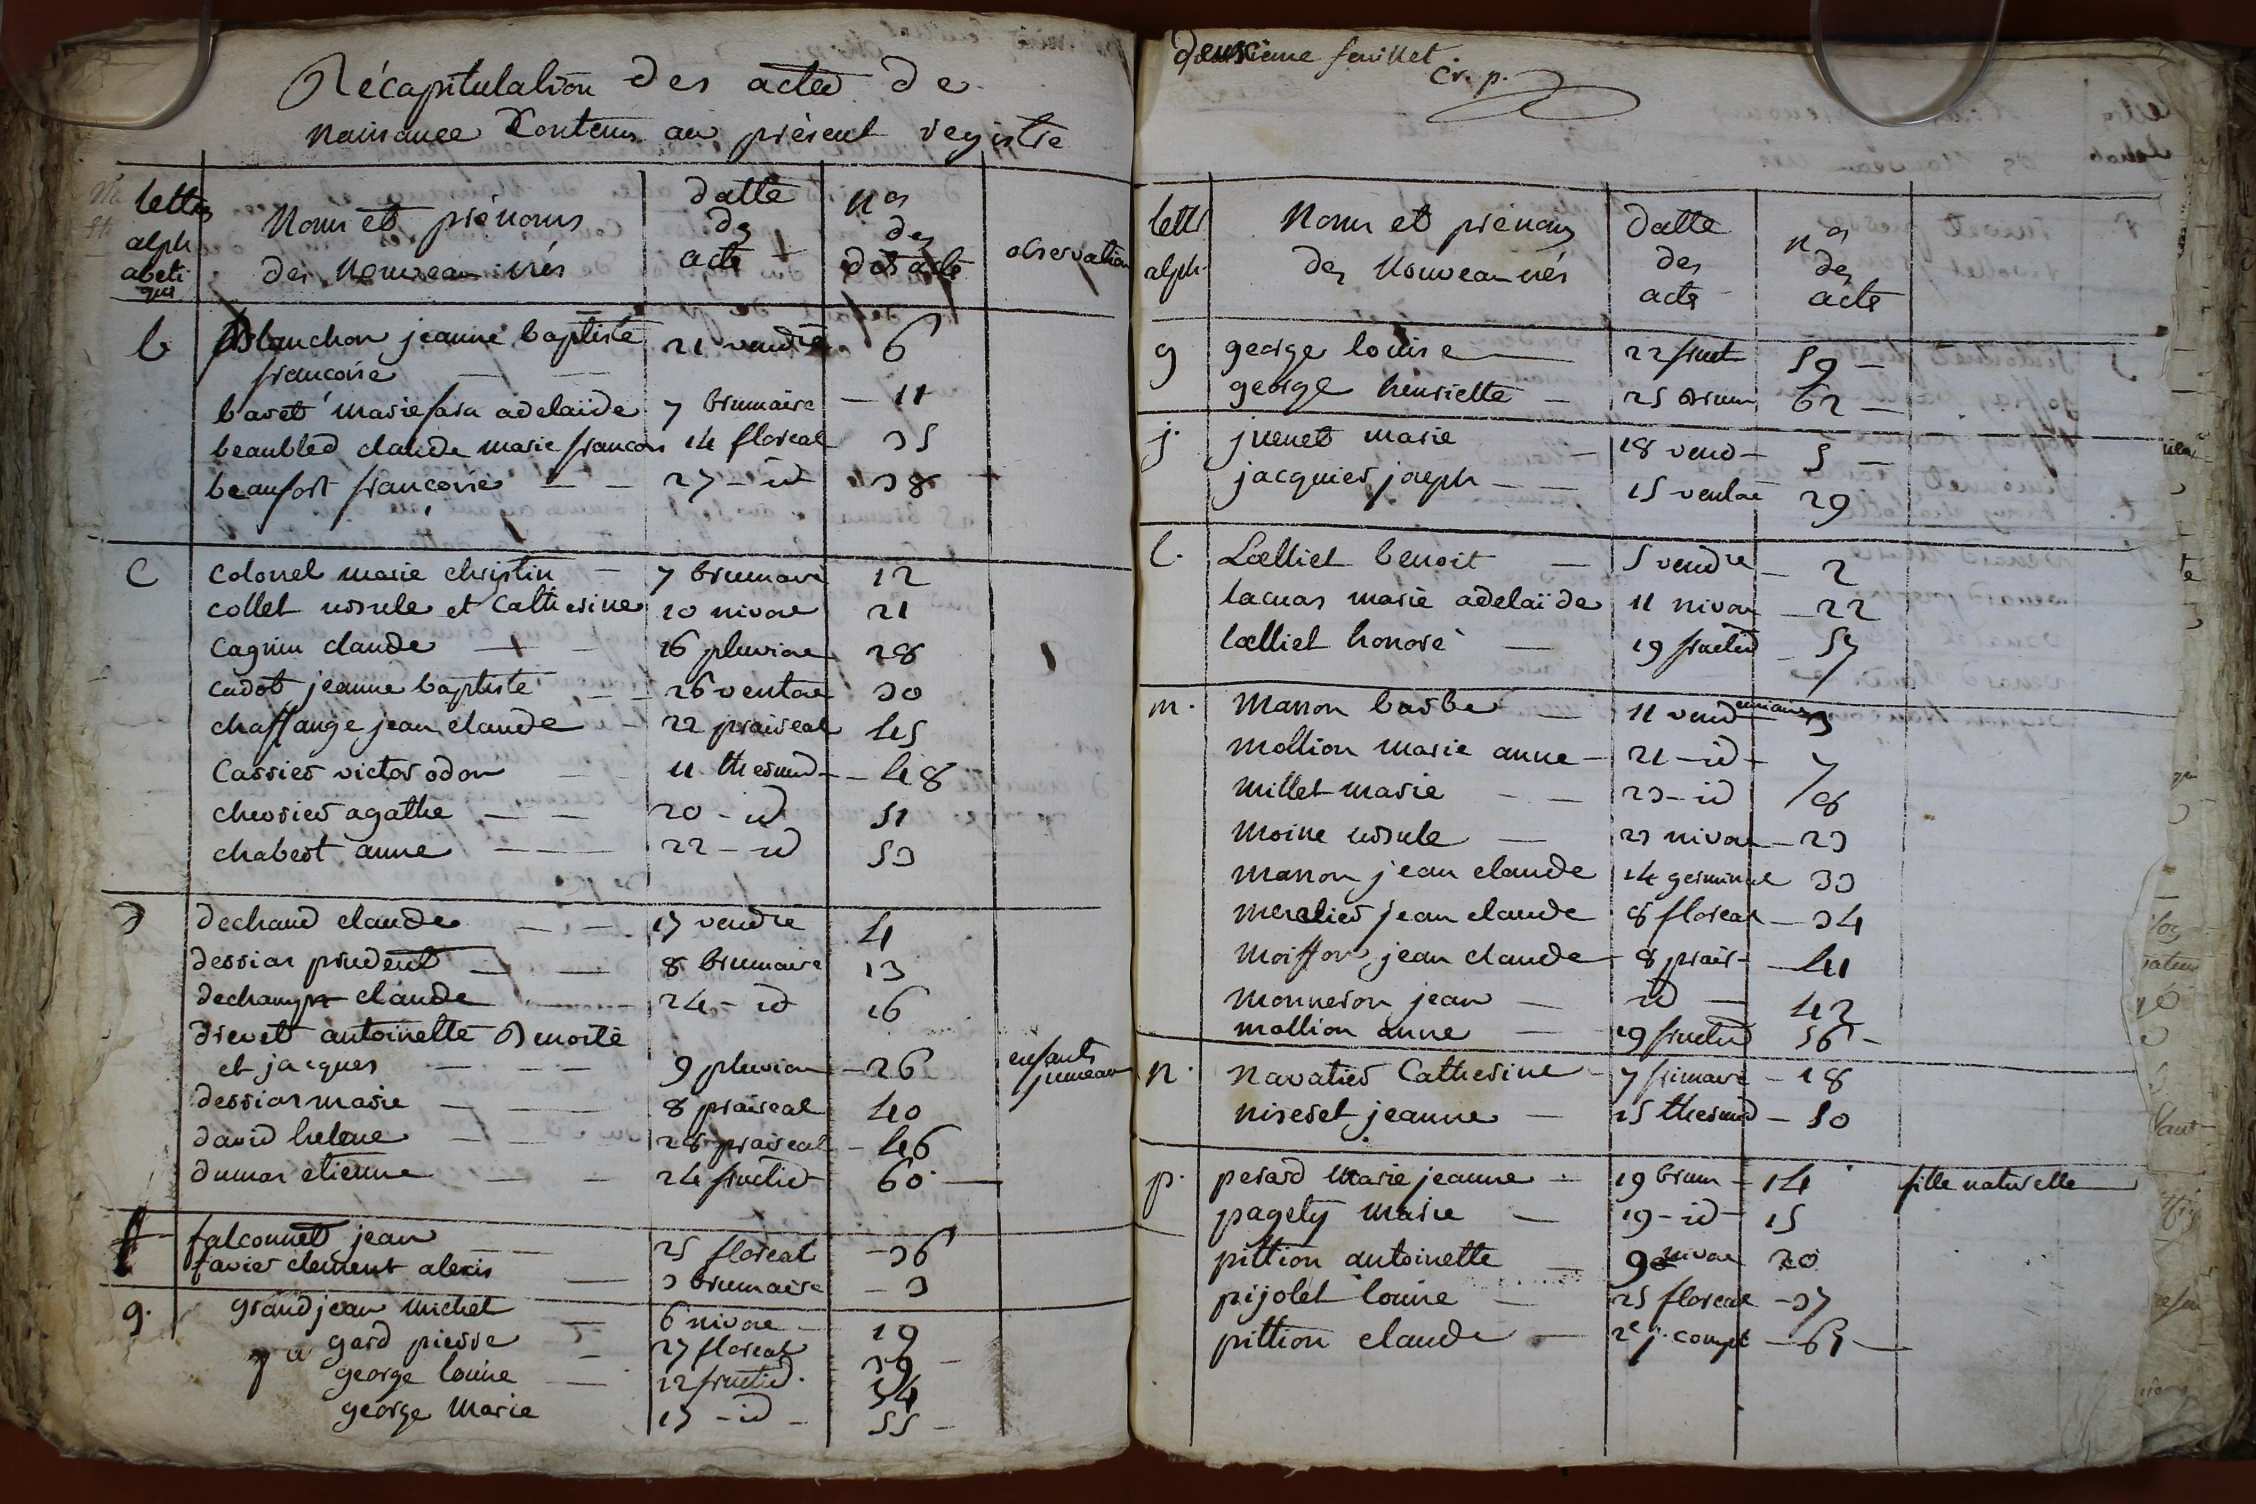 Récapitulation des actes de
naissance Contenus au présent registre
lettres alphabetique | Noms et prénoms des Nouveau nés | datte des acte | nos des acte | observation
b | Blanchon jeanne baptiste | 21 vendre | 6
francoise
baret marie adelaïde | 7 brumaire | 11
beaubled claude marie francois | 14 floreal | 35
beaufort francoise | 27 id | 38
C | Colonel marie christin | 7 brumaire | 12
collet ursule et Catherine | 20 nivose | 21
Cagnin claude | 16 pluviose | 28
Cadot jeanne baptiste | 26 ventose | 30
chaffange jean claude | 22 praireal | 45
Cassier victor odon | 11 thermid | 48
chevrier agathe | 20 id | 51
chabert anne | 22 id | 53
D | dechaud claude | 17 vendre | 4
dessias prudent | 8 brumaire | 13
dechamps claude | 24 id | 16
drevet antoinette Benoite
et jacques | 9 pluviose | 26 | enfants jumeau
dessias marie | 8 praireal | 40
david helene | 28 praireal | 46
dumas etienne | 24 fructid | 60
f | falconnet jean | 25 floreal | 36
favier clement alexis | 3 brumaire | 3
g. | grandjean michel | 6 nivose | 19
gard pierre | 27 floreal | 39
george louise | 12 fructid. | 54
george Marie | 17 id | 55
deuxieme feuillet.
Cr. p.
lettr alph. | Noms et prénoms des Nouveau nés | datte des acte | nos des acte
g | george louise | 22 fruct | 59
george henriette | 25 brum | 62
j. | juenet marie | 18 vend | 5
jacquier joseph | 15 ventose | 29
l. | Lœlliet benoit | 5 vendre | 2
lacuas marie adelaïde | 11 nivose | 22
lœlliet honoré | 19 fructid | 57
m. | Manon barbe | 11 vendemiaire | 3
mollion marie anne | 21 id | 7
millet marie | 23 id | 8
moine ursule | 23 nivose | 23
manon jean claude | 14 germinal | 33
merclier jean claude | 8 floreal | 34
moiffon jean claude | 8 prair | 41
monneron jean | id | 42
mollion anne | 19 fructid | 56
n. | navatier Catherine | 7 frimaire | 18
niseret jeanne | 15 thermid | 50
p. | perard Marie jeanne | 19 brum | 14 | fille naturelle
pagety Marie | 19 id | 15
pittion antoinette | 9 nivose | 20
pijolet louise | 25 floreal | 37
pittion claude | 2e j. compt | 61